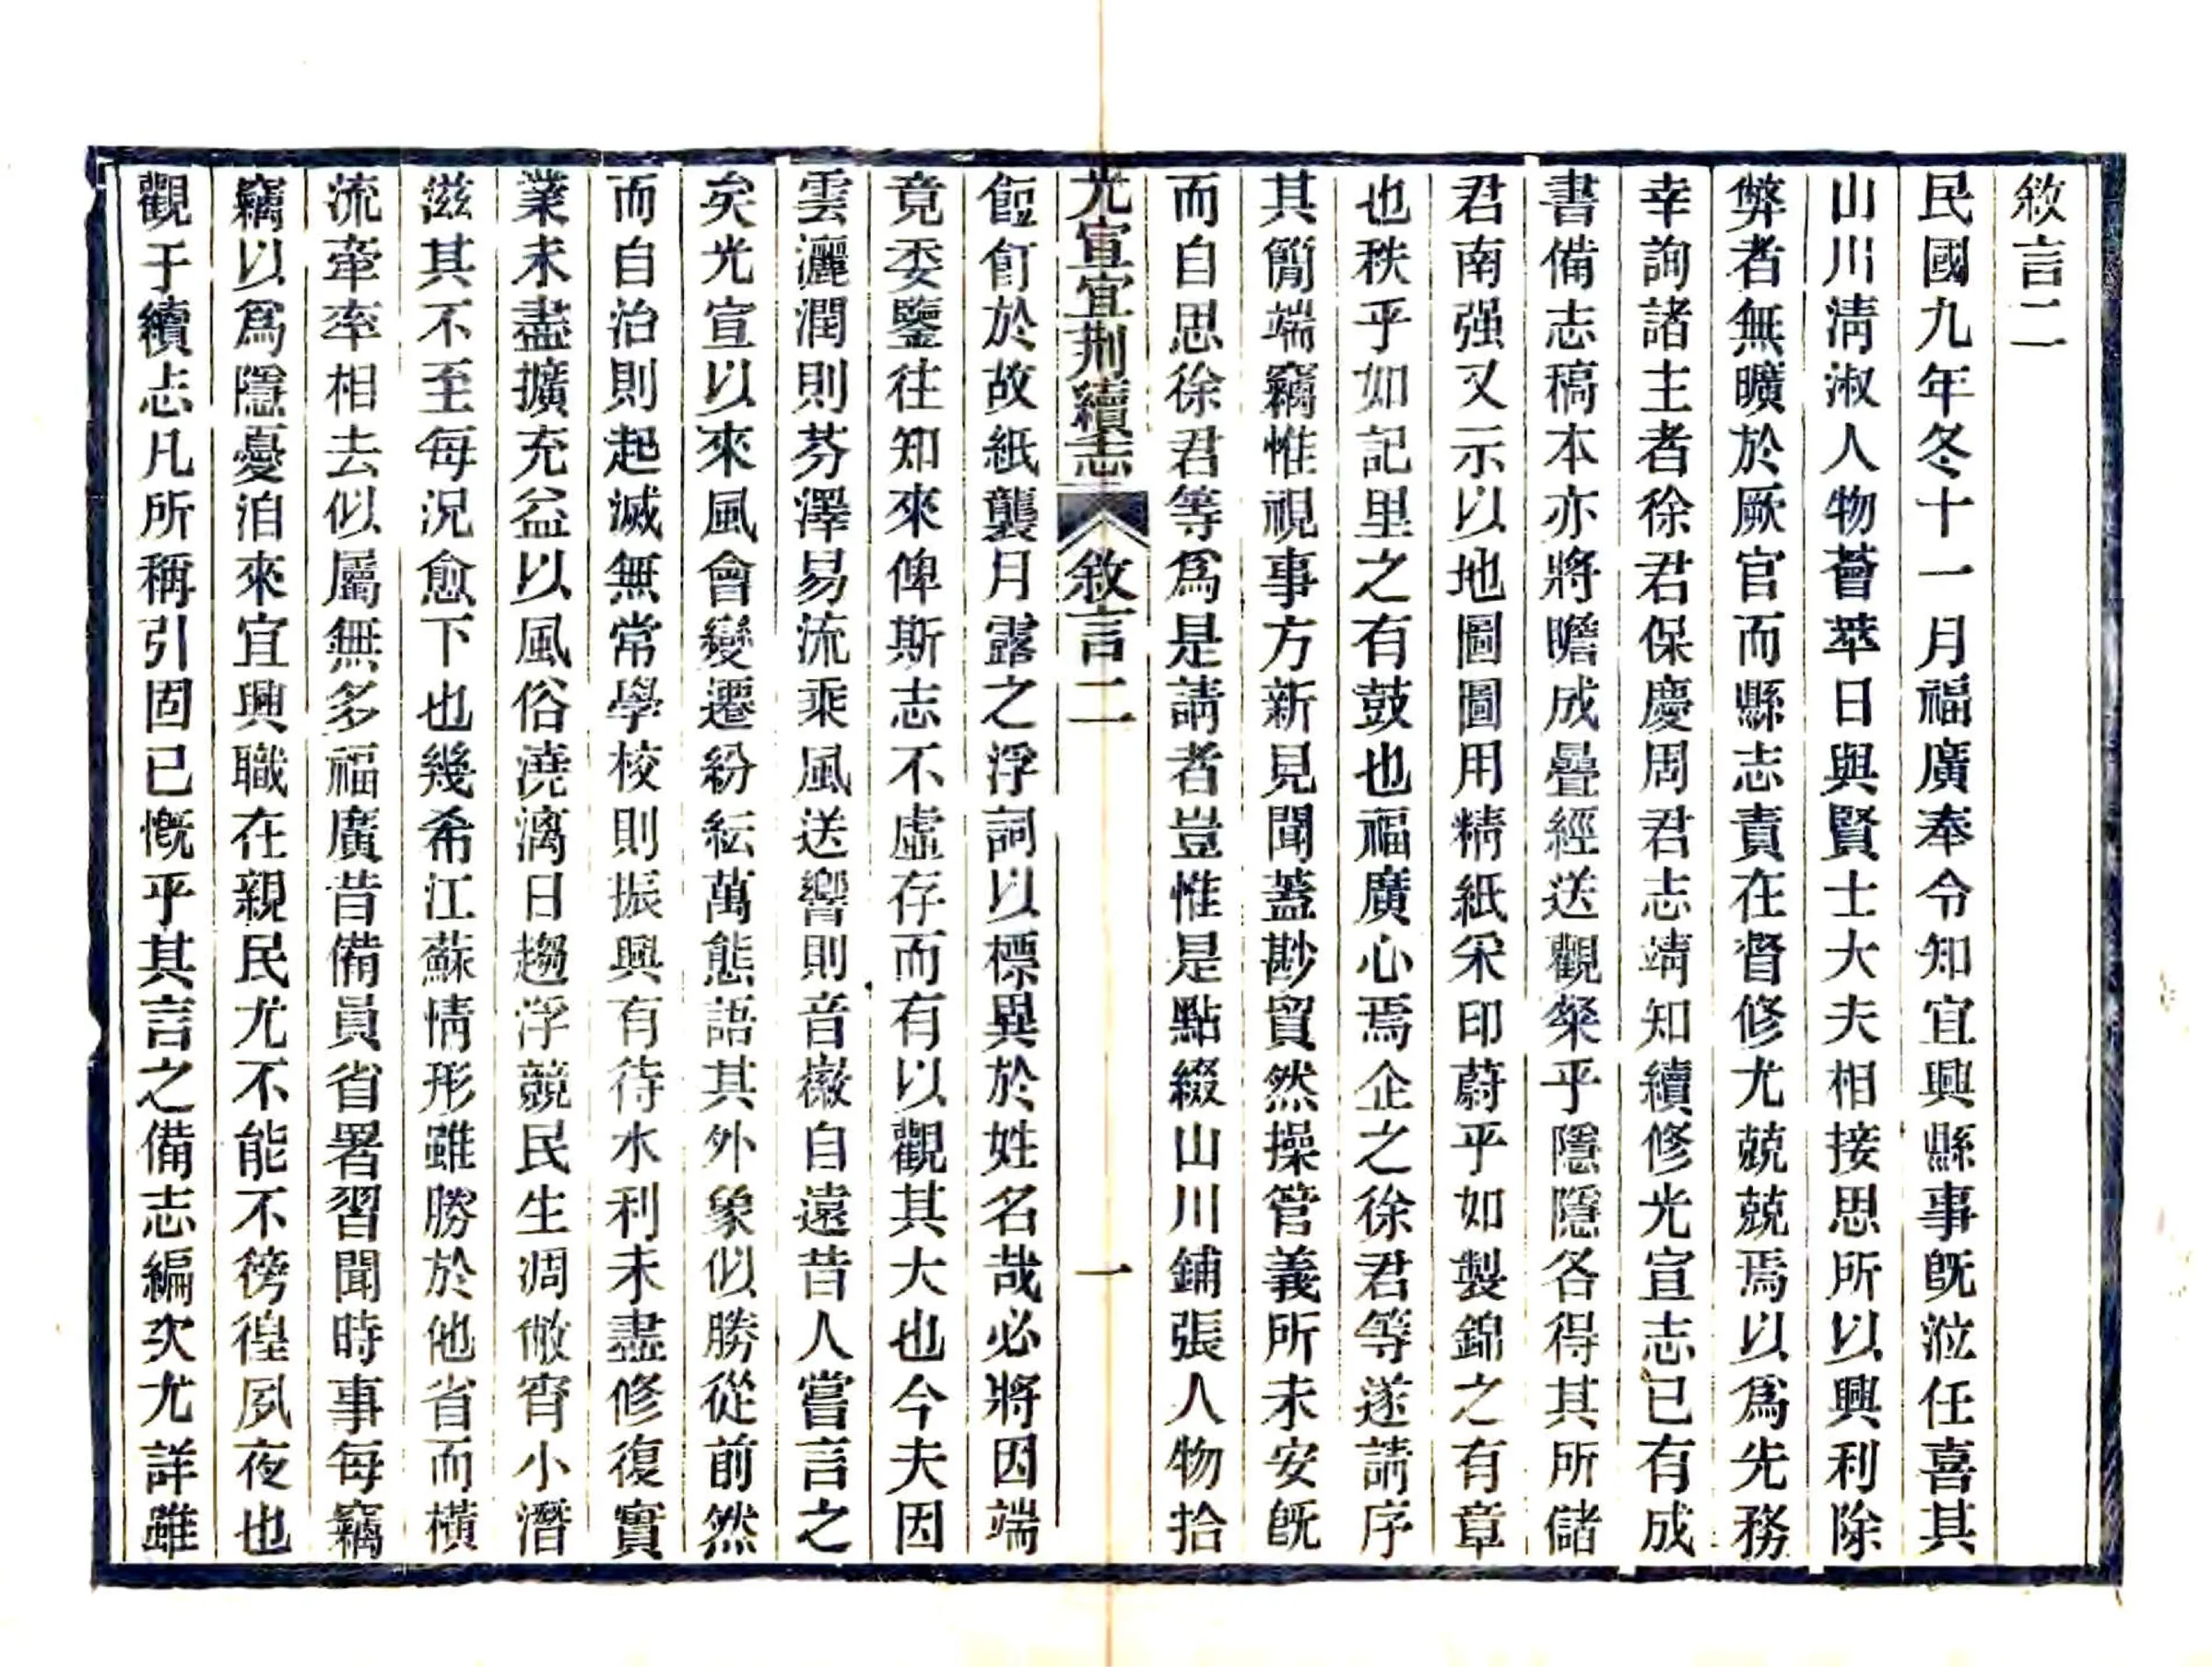 敘言二
民國九年冬十一月福廣奉令知宜興縣事旣涖任喜其
山川淸淑人物薈萃日與賢士大夫相接思所以興利除
弊者無曠於厥官而縣志責在督修尤兢兢焉以爲先務
幸詢諸主者徐君保慶周君志靖知續修光宣志已有成
書備志稿本亦將瞻成疊經送觀粲乎隱隱各得其所儲
君南强又示以地圖圖用精紙采印蔚乎如製錦之有章
也秩乎如記里之有鼓也福廣心焉企之徐君等遂請序
其簡端竊惟視事方新見聞蓋尠貿然操管義所未安旣
而自思徐君等爲是請者豈惟是點綴山川鋪張人物拾
光宣宜荆續志 敘言二 一
餖飣於故紙襲月露之浮詞以標異於姓名哉必將因端
竟委鑒往知來俾斯志不虛存而有以觀其大也今夫因
雲灑潤則芬澤易流乘風送響則音徽自遠昔人嘗言之
矣光宣以來風會變遷紛紜萬態語其外象似勝從前然
而自治則起滅無常學校則振興有待水利未盡修復實
業未盡擴充益以風俗澆漓日趨浮競民生凋敝宵小潛
滋其不至每況愈下也幾希江蘇情形雖勝於他省而橫
流牽率相去似屬無多福廣昔備員省署習聞時事每竊
竊以爲隱憂洎來宜興職在親民尤不能不徬徨夙夜也
觀于續志凡所稱引固已慨乎其言之備志編次尤詳雖